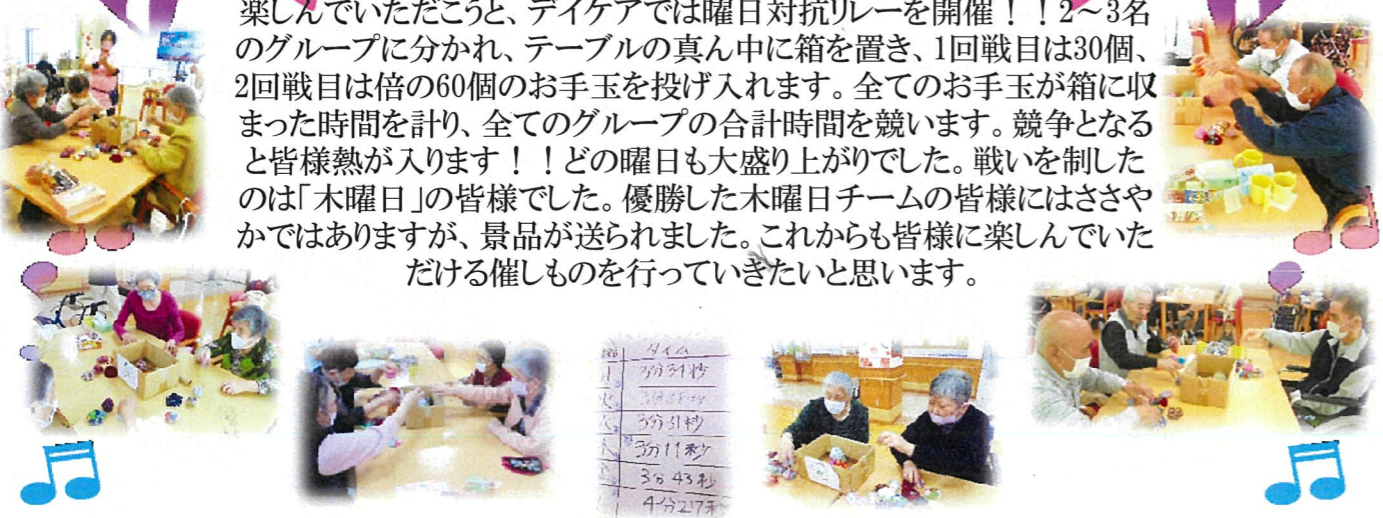 楽しんでいただこうと、デイケアでは曜日対抗リレーを開催！！2～3名
のグループに分かれ、テーブルの真ん中に箱を置き、1回戦目は30個、
2回戦目は倍の60個のお手玉を投げ入れます。全てのお手玉が箱に収
まった時間を計り、全てのグループの合計時間を競います。競争となる
と皆様熱が入ります！！どの曜日も大盛り上がりでした。戦いを制した
のは「木曜日」の皆様でした。優勝した木曜日チームの皆様にはささや
かではありますが、景品が送られました。これからも皆様に楽しんでいた
だける催しものを行っていきたいと思います。
タイム
3分31秒
3分11秒
3分43秒
4分27秒